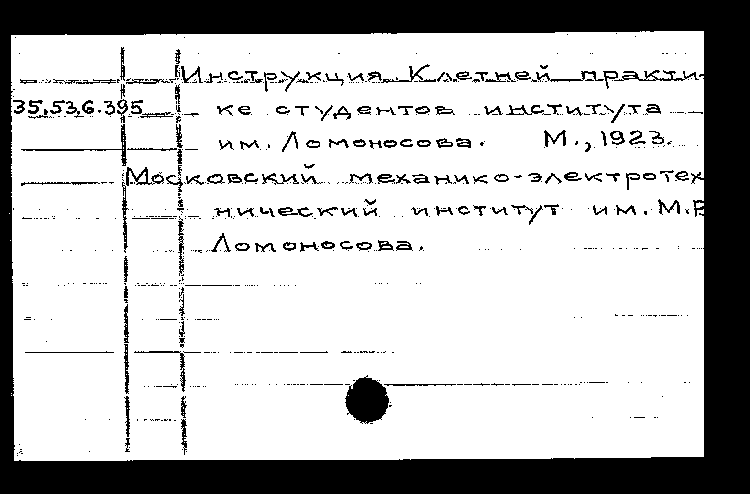 Инструкция К летней практи-
35,53,6.395 ке студентов института
им. Ломоносова. М., 1923.
Московский механико-электротех
нический институт им. М.В
Ломоносова.